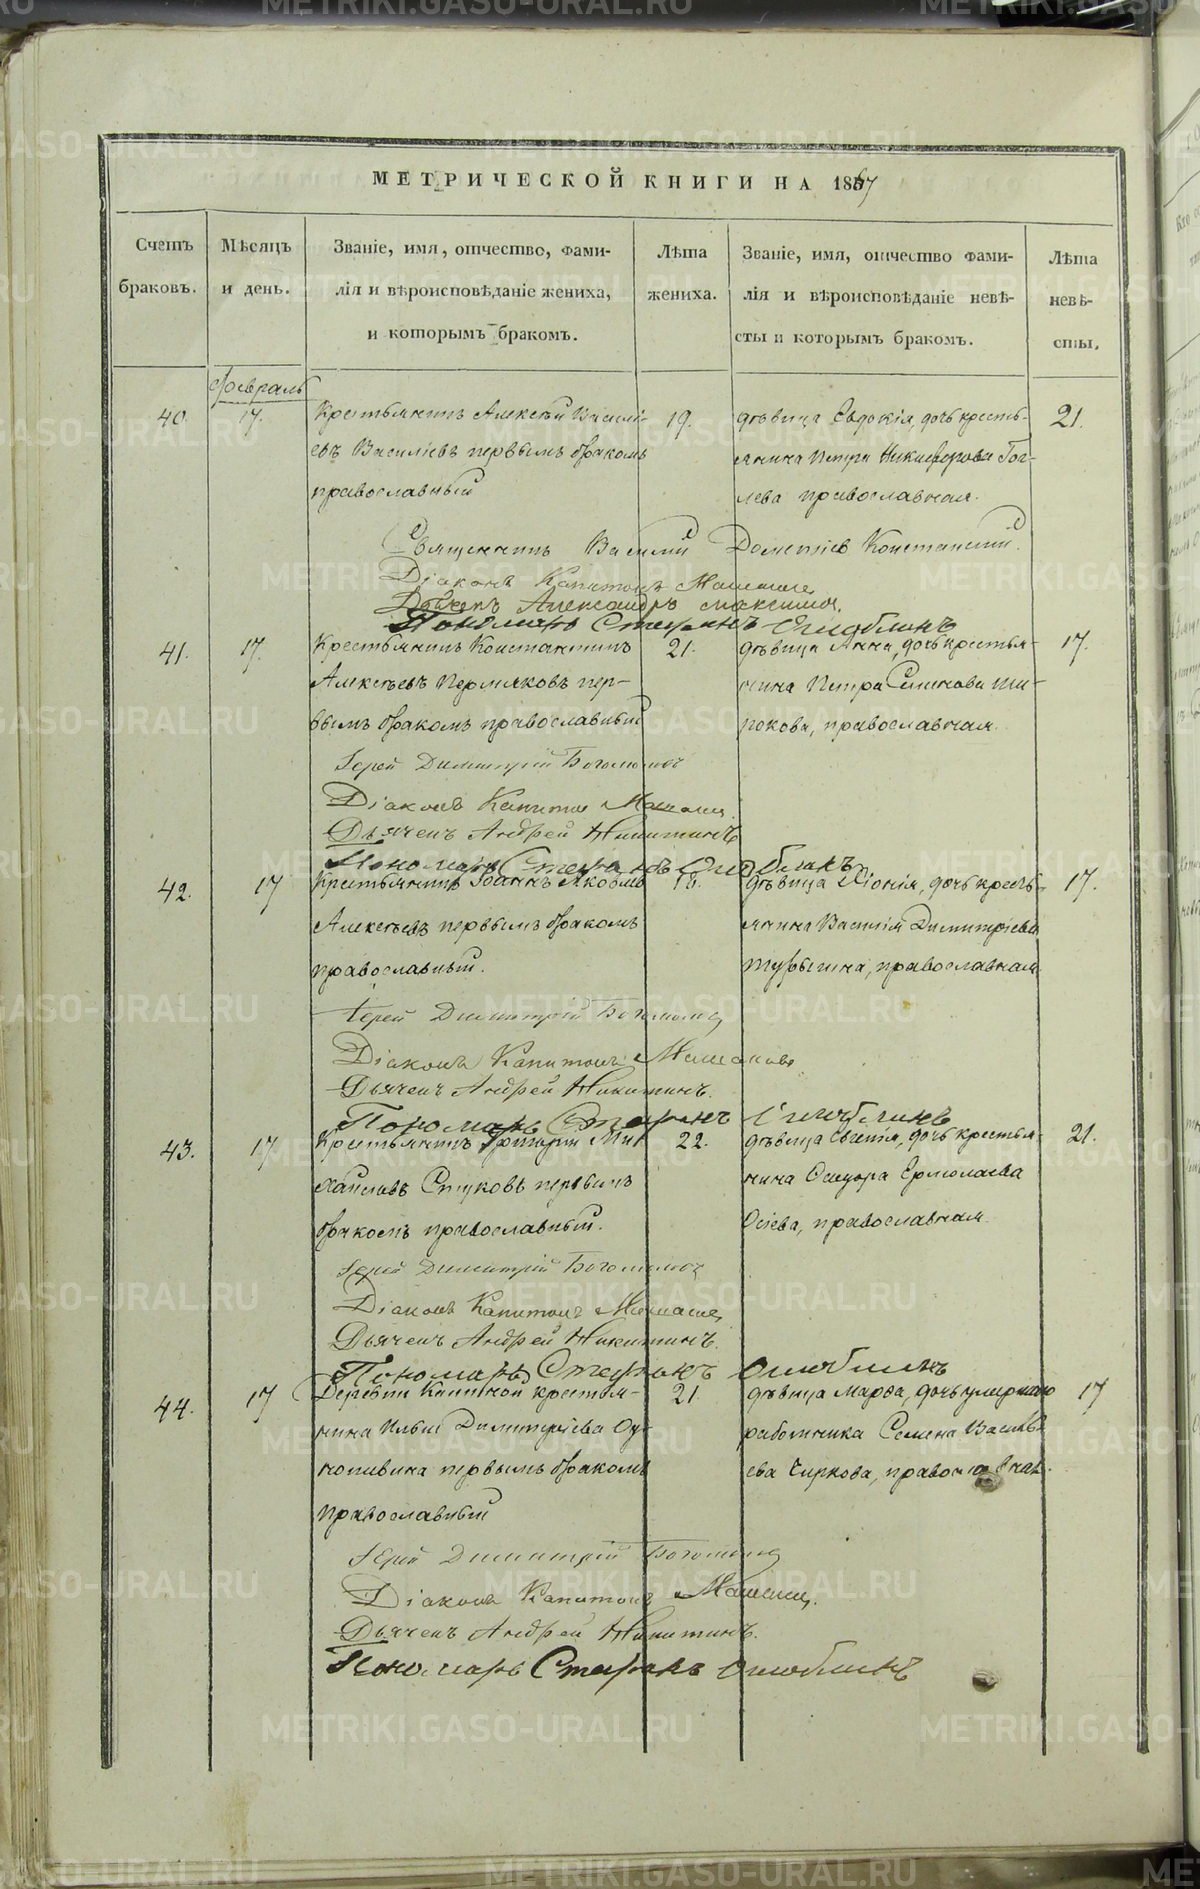 МЕТРИЧЕСКОЙ КНИГИ НА 1857
Счетъ браковъ.
Мѣсяцъ и день.
Званіе, имя, отчество, фами-
лія и вѣроисповѣданіе жениха,
и которымъ бракомъ.
Лѣта жениха.
Званіе, имя, отчество фами-
лія и вѣроисповѣданіе невѣ-
сты и которымъ бракомъ.
Лѣта невѣ-
сты.
Февраль
40. 17.
Крестьянинъ Алексѣй Василі-
евъ Василіевъ первымъ бракомъ
православный
19.
дѣвица Евдокія, дочь кресть-
янина Петра Никифорова Гог-
лева православная.
21.
Священникъ Василій Дометіев
Діаконъ Капитонъ
Дьячекъ Александръ
Пономарь Стефанъ
41. 17.
Крестьянинъ Константинъ
Алексѣевъ Пермяковъ пер-
вымъ бракомъ православный
21.
дѣвица Анна, дочь крестья-
нина Петра Семенова Ши-
рокова, православная.
17.
Іерей Димитрій Богомоловъ
Діаконъ Капитон
Дьячекъ Андрей Никитинъ
Пономарь Стефанъ
42. 17
Крестьянинъ Іоаннъ Яковлевъ
Алексѣевъ первымъ бракомъ
православный.
дѣвица Хіонія, дочь кресть-
янина Василія Димитріева
Турыгина, православная
17.
Іерей Димитрій Богомолов
Діаконъ Капитонъ
Дьячекъ Андрей Никитинъ.
Пономарь Стефанъ
43. 17
Крестьянинъ Григорій Ми-
хайловъ Стуковъ первымъ
бракомъ православный.
22.
дѣвица Евгенія, дочь крестья-
нина Ѳедора Ермолаева
Осіева, православная
21.
Іерей Димитрій Богомоловъ
Діаконъ Капитонъ
Дьячекъ Андрей Никитинъ.
Пономарь Стефанъ
44. 17
Деревни Калиной крестья-
нина Ильи Димитріева
первымъ бракомъ
православный
21.
дѣвица Марѳа, дочь умершаго
работника Семена Василь-
ева Чиркова, православная.
17
Іерей Димитрій Богомолов
Діаконъ Капитонъ
Дьячекъ Андрей Никитинъ.
Пономарь Стефанъ
METRIKI.GASO-URAL.RU